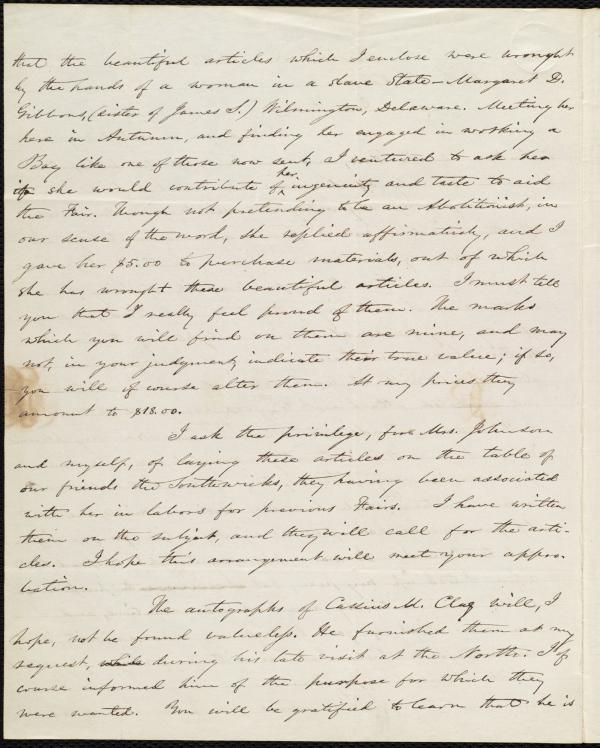 that the beautiful articles which I enclose were wrought
by the hands of a woman in a slave State – Margaret D.
Gibbons, (sister of James S.) Wilmington, Delaware. Meeting her
here in Autumn, and finding her engaged in working a
Bag like one of those now sent, I ventured to ask her
if she would contribute of her ingenuity and taste to aid
the Fair. Though not pretending to be an Abolitionist, in
our sense of the word, she replied affirmatively, and I
gave her $5.00 to purchase materials, out of which
she has wrought these beautiful articles. I must tell
you that I really feel proud of them. The marks
which you will find on them are mine, and may
not, in your judgment, indicate their true value; if so,
you will of course alter them. At my prices they
amount to $18.00.
I ask the privilege, for Mrs. Johnson
and myself, of laying these articles on the table of
our friends the Southwicks, they having been associated
with her in labors for previous Fairs. I have written
them on the subject, and they will call for the arti-
cles. I hope this arrangement will meet your appro-
bation.
The autographs of Cassius M. Clay will, I
hope, not be found valueless. He furnished them at my
request, while during his late visit at the North. I of
course informed him of the purpose for which they
were wanted. You will be gratified to learn that he is